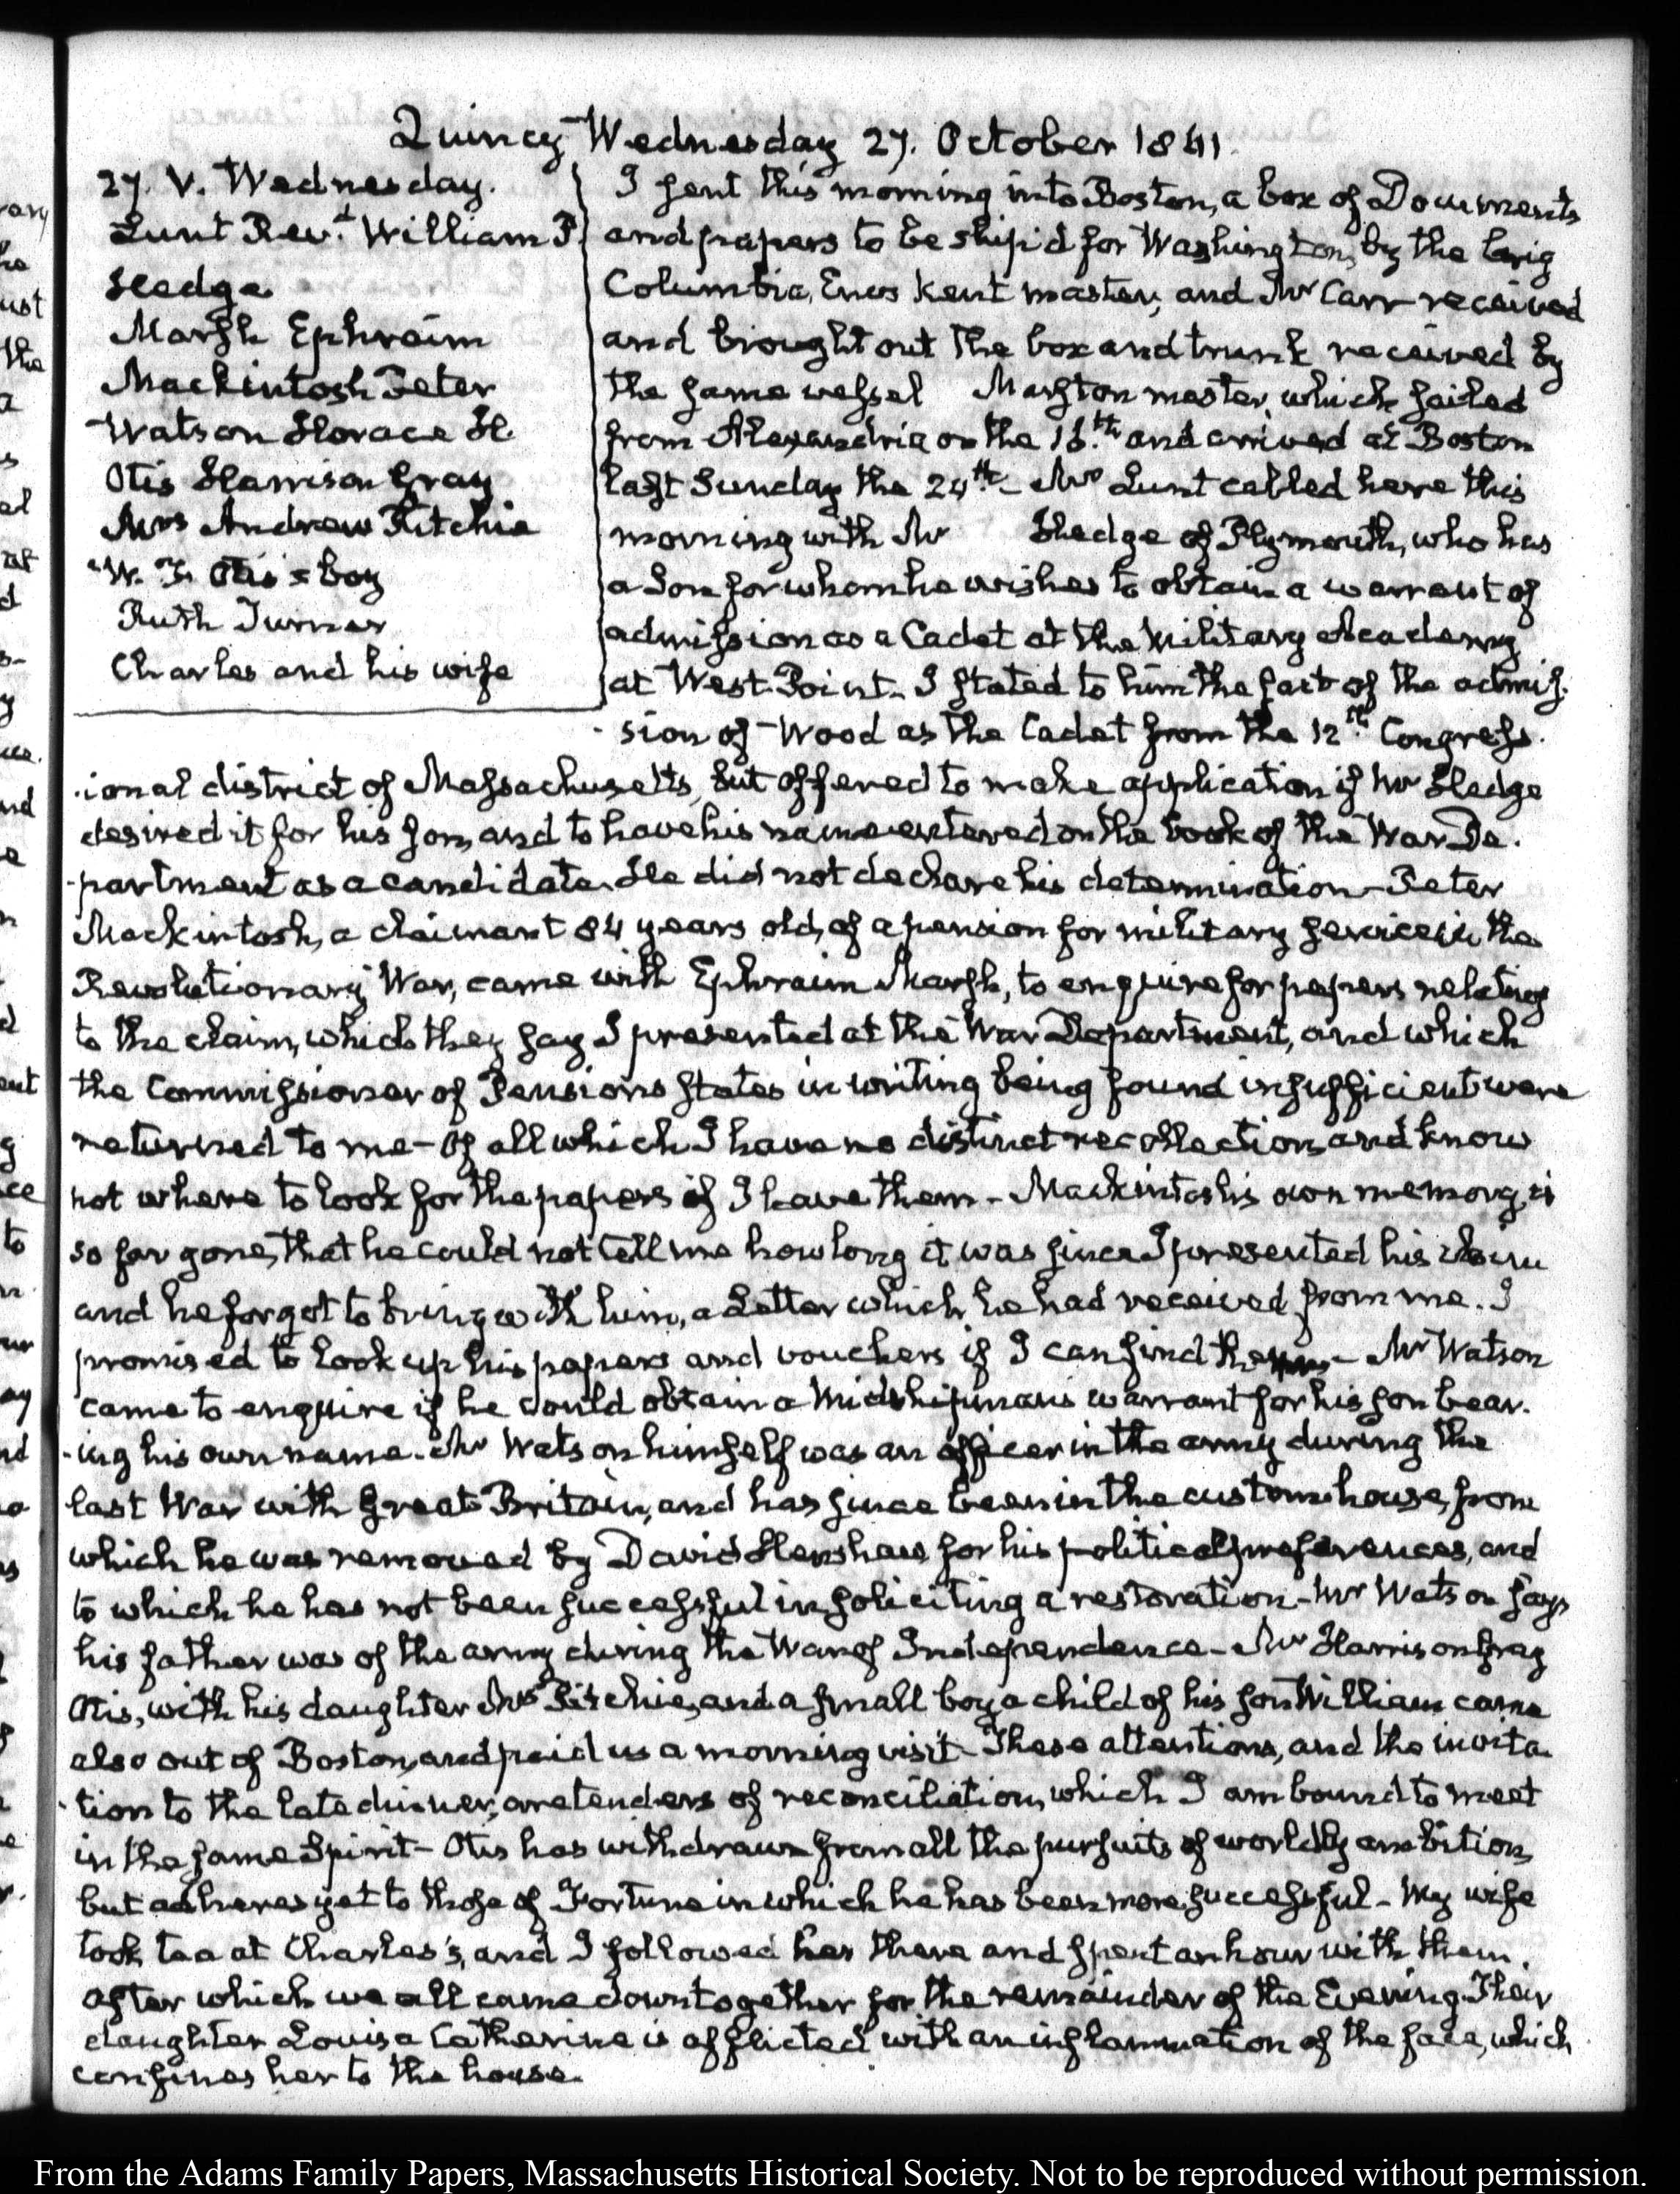 Quincy Wednesday 27. October 1841.
27. V. Wednesday.
Lunt Revd. William P
Hedge
Marsh Ephraim
Mackintosh Peter
Watson Horace H.
Otis Harrison Gray
Mrs Andrew Ritchie
W. F. Otis's boy
Ruth Turner
Charles and his wife
I sent this morning into Boston, a box of Documents
and papers to be ship'd for Washington, by the brig
Columbia, Enos Kent master, and Mr Carr received
and brought out the box and trunk received by
the same vessel Marston master, which sailed
from Alexandria on the 16.th and arrived at Boston
last Sunday the 24th.- Mr Lunt called here this
morning with Mr Hedge of Plymouth, who has
a Son for whom he wishes to obtain a warrant of
admission as a Cadet at the Military Academy
at West-Point- I stated to him the fact of the admis-
sion of Wood as the Cadet from the 12th. Congress-
-ional district of Massachusetts, but offered to make application if Mr Hedge
desired it for his son, and to have his name entered on the book of the War De-
-partment as a candidate. He did not declare his determination- Peter
Mackintosh, a claimant 84 years old, of a pension for military service in the
Revolutionary War, came with Ephraim Marsh, to enquire for papers relating
to the claim, which they say I presented at the War Department, and which
the Commissioner of Pensions states in writing being found insufficient were
returned to me- Of all which I have no distinct recollection, and know
not where to look for the papers if I have them- Mackintosh's own memory is
so far gone, that he could not tell me how long it was since I presented his claim
and he forgot to bring with him, a Letter which he had received from me. I
promised to look up his papers and vouchers if I can find them- Mr Watson
came to enquire if he could obtain a Midshipman's warrant for his son bear-
-ing his own name. Mr Watson himself was an officer in the army during the
last War with Great Britain, and has since been in the custom house, from
which he was removed by David Henshaw for his political preferences, and
to which he has not been successful in soliciting a restoration- Mr Watson says
his father was of the army during the War of Independence- Mr Harrison Gray
Otis, with his daughter Mrs Ritchie, and a small boy, a child of his son William came
also out of Boston, and paid us a morning visit- These attentions, and the invita-
-tion to the late dinner, are tenders of reconciliation, which I am bound to meet
in the same Spirit- Otis has withdrawn from all the pursuits of worldly ambition,
but adheres yet to those of Fortune in which he has been more successful- My wife
took tea at Charles's, and I followed her there and spent an hour with them.
after which we all came down together for the remainder of the Evening. Their
daughter Louisa Catherine is afflicted with an inflammation of the face, which
confines her to the house.
From the Adams Family Papers, Massachusetts Historical Society. Not to be reproduced without permission.